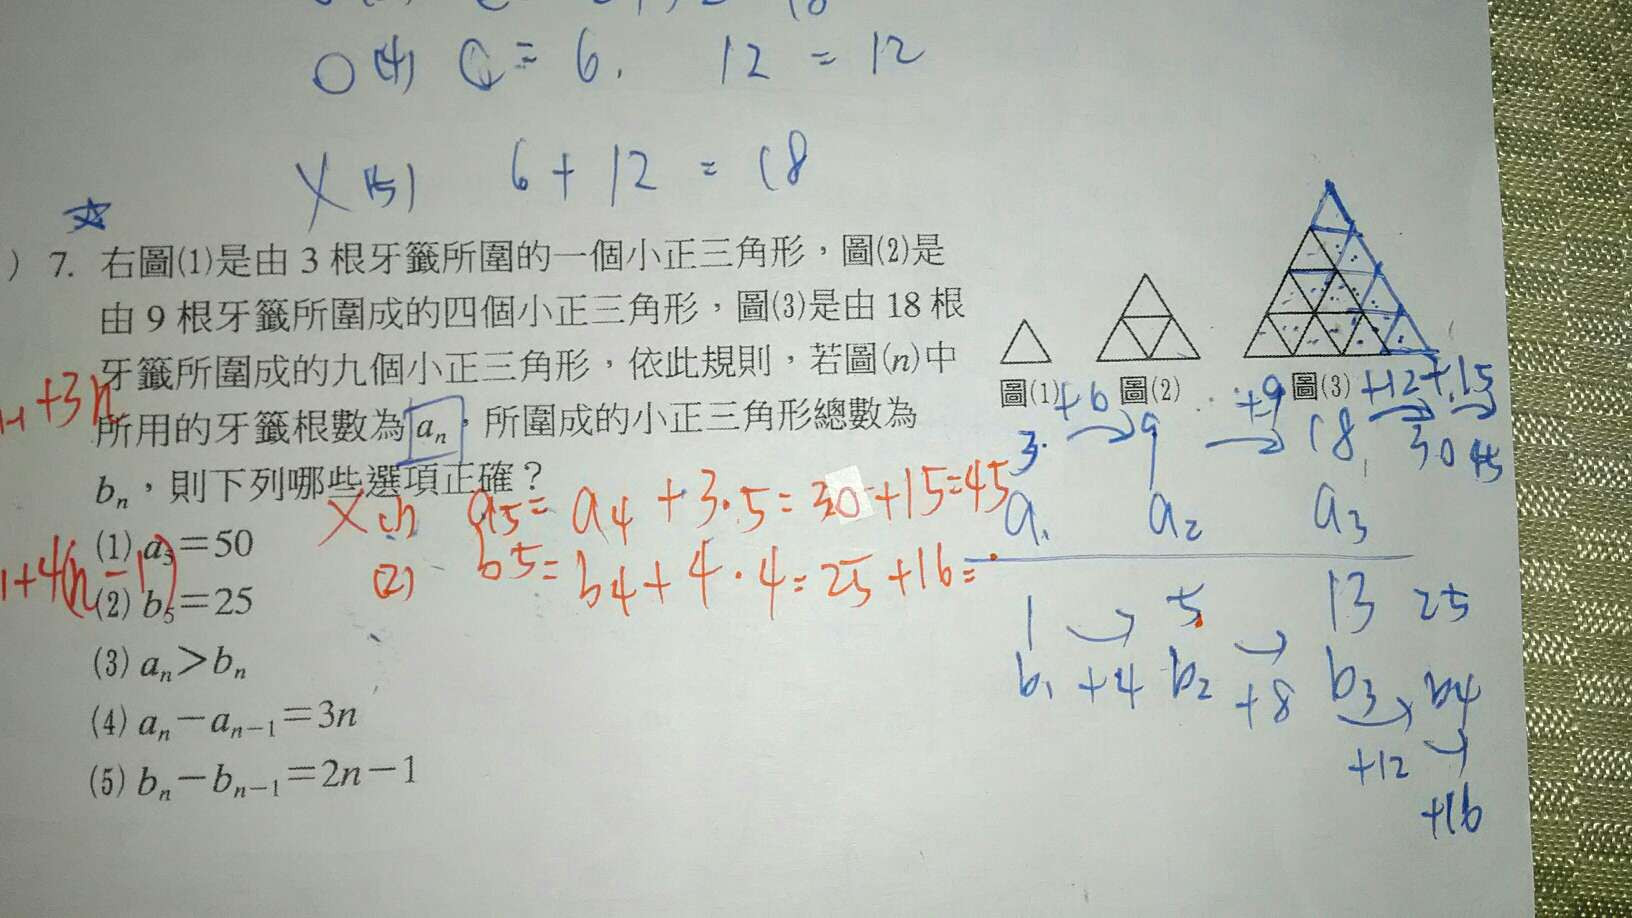 ○(4) C = 6. 12 = 12
X (5) 6 + 12 = 18
☆
) 7. 右圖(1)是由 3 根牙籤所圍的一個小正三角形，圖(2)是
由 9 根牙籤所圍成的四個小正三角形，圖(3)是由 18 根
牙籤所圍成的九個小正三角形，依此規則，若圖(n)中
所用的牙籤根數為 aₙ，所圍成的小正三角形總數為
bₙ，則下列哪些選項正確？
圖(1) 圖(2) 圖(3)
+6 +9 +12 +15
3 9 18 30 45
a₁ a₂ a₃
+3n
X (1) a₅ = a₄ + 3·5 = 30 + 15 = 45
(2) b5 = b4 + 4·4 = 25 + 16 =
1 5 13 25
b₁ +4 b₂ +8 b₃ b4
+12
+16
(1) a₅＝50
1+4(n-1)
(2) b₅＝25
(3) aₙ＞bₙ
(4) aₙ－aₙ₋₁＝3n
(5) bₙ－bₙ₋₁＝2n－1